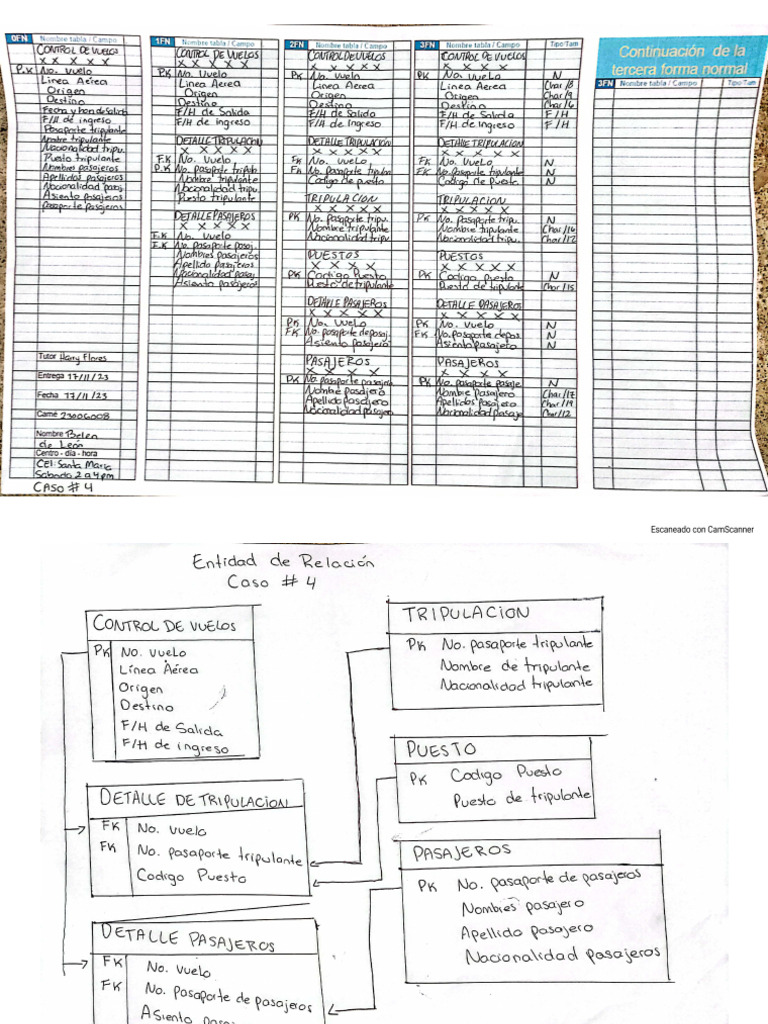 0FN Nombre tabla / Campo
CONTROL DE VUELOS
X X X X X
P.K No. Vuelo
Linea Aérea
Origen
Destino
Fecha y hora de Salida
F/H de ingreso
Pasaporte tripulante
Nombre tripulante
Nacionalidad tripu.
Puesto tripulante
Nombres pasajeros
Apellidos pasajeros
Nacionalidad pasaj.
Asiento pasajeros
Pasaporte pasajeros
Tutor Harry Flores
Entrega 17/11/23
Fecha 17/11/23
Carné 23006008
Nombre Belen
de León
Centro - día - hora
CEI: Santa María
Sabado 2 a 4 pm
CASO # 4
1FN Nombre tabla / Campo
CONTROL DE VUELOS
X X X X X
PK No. Vuelo
Linea Aerea
Origen
Destino
F/H de Salida
F/H de ingreso
DETALLE TRIPULACION
X X X X X
F.K No. Vuelo
P.K No. pasaporte tripula
Nombre tripulante
Nacionalidad tripu.
Puesto tripulante
DETALLE PASAJEROS
X X X X X
F.K No. Vuelo
F.K No. pasaporte pasaj.
Nombres pasajeros
Apellido pasajeros
Nacionalidad pasaj
Asiento pasajeros
2FN Nombre tabla / Campo
CONTROL DE VUELOS
X X X X X
PK No. Vuelo
Linea Aerea
Origen
Destino
F/H de Salida
F/H de ingreso
DETALLE TRIPULACION
X X X X X
FK No. Vuelo
FK No. pasaporte tripu
Codigo de puesto
TRIPULACION
X X X X X
PK No. pasaporte tripu.
Nombre tripulante
Nacionalidad tripu
PUESTOS
X X X X X
PK Codigo Puesto
Puesto de tripulante
DETALLE PASAJEROS
X X X X X
PK No. Vuelo
FK No. pasaporte de pasaj.
Asiento pasajero
PASAJEROS
X X X X
PK No. pasaporte pasaje
Nombre pasajero
Apellido pasajero
Nacionalidad pasajero
3FN Nombre tabla / Campo Tipo/Tam
CONTROL DE VUELOS
X X X X
PK No. Vuelo N
Linea Aerea Char/8
Origen Char/9
Destino Char/6
F/H de Salida F/H
F/H de ingreso F/H
DETALLE TRIPULACION
X X X X X
FK No. Vuelo N
FK No. pasaporte tripulante N
Codigo de Puesto N
TRIPULACION
X X X X X
PK No. pasaporte tripu. N
Nombre tripulante Char/16
Nacionalidad tripu. Char/12
PUESTOS
X X X X X
PK Codigo puesto N
Puesto de tripulante Char/15
DETALLE PASAJEROS
X X X X X
PK No. Vuelo N
FK No. pasaporte depas. N
Asiento pasajero N
PASAJEROS
X X X X
PK No. pasaporte pasaje N
Nombre pasajero Char/17
Apellidos pasajero Char/19
Nacionalidad pasaje Char/12
Continuación de la
tercera forma normal
3FN Nombre tabla / Campo Tipo/Tam
Escaneado con CamScanner
Entidad de Relación
Caso # 4
CONTROL DE VUELOS
PK No. vuelo
Línea Aérea
Origen
Destino
F/H de Salida
F/H de ingreso
DETALLE DE TRIPULACION
FK No. vuelo
FK No. pasaporte tripulante
Codigo Puesto
DETALLE PASAJEROS
FK No. vuelo
FK No. pasaporte de pasajeros
Asiento
TRIPULACION
PK No. pasaporte tripulante
Nombre de tripulante
Nacionalidad tripulante
PUESTO
PK Codigo Puesto
Puesto de tripulante
PASAJEROS
PK No. pasaporte de pasajeros
Nombres pasajero
Apellido pasajero
Nacionalidad pasajeros